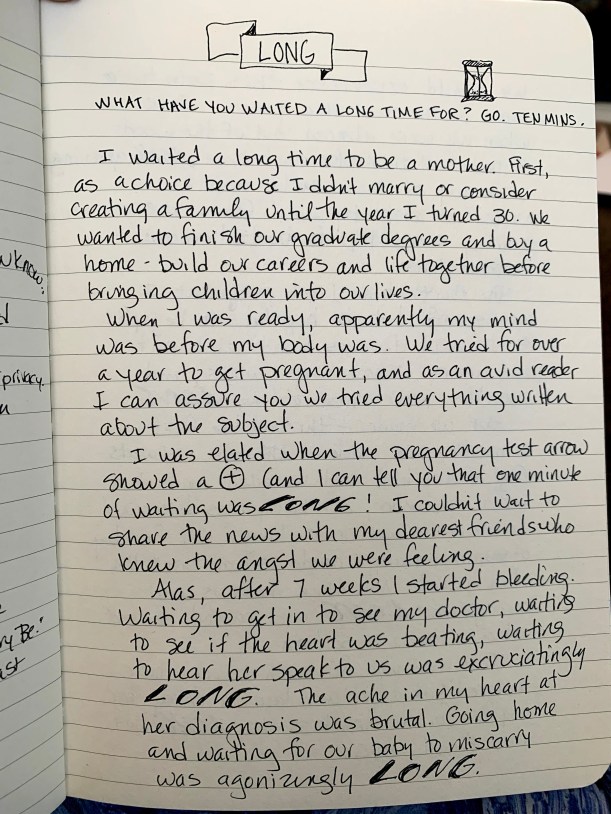 LONG
WHAT HAVE YOU WAITED A LONG TIME FOR? GO. TEN MINS.
I waited a long time to be a mother. First,
as a choice because I didn't marry or consider
creating a family until the year I turned 30. We
wanted to finish our graduate degrees and buy a
home - build our careers and life together before
bringing children into our lives.
When I was ready, apparently my mind
was before my body was. We tried for over
a year to get pregnant, and as an avid reader
I can assure you we tried everything written
about the subject.
I was elated when the pregnancy test arrow
showed a + (and I can tell you that one minute
of waiting was LONG! I couldn't wait to
share the news with my dearest friends who
knew the angst we were feeling.
Alas, after 7 weeks I started bleeding.
Waiting to get in to see my doctor, waiting
to see if the heart was beating, waiting
to hear her speak to us was excruciatingly
LONG. The ache in my heart at
her diagnosis was brutal. Going home
and waiting for our baby to miscarry
was agonizingly LONG.
know:
d
privacy
ry Be!
ast